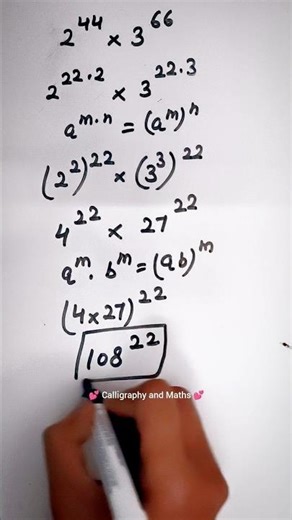 2^44 × 3^66
2^22·2 × 3^22·3
a^m·n = (a^m)^n
(2^2)^22 × (3^3)^22
4^22 × 27^22
a^m · b^m = (ab)^m
(4×27)^22
108^22
💕 Calligraphy and Maths 💕